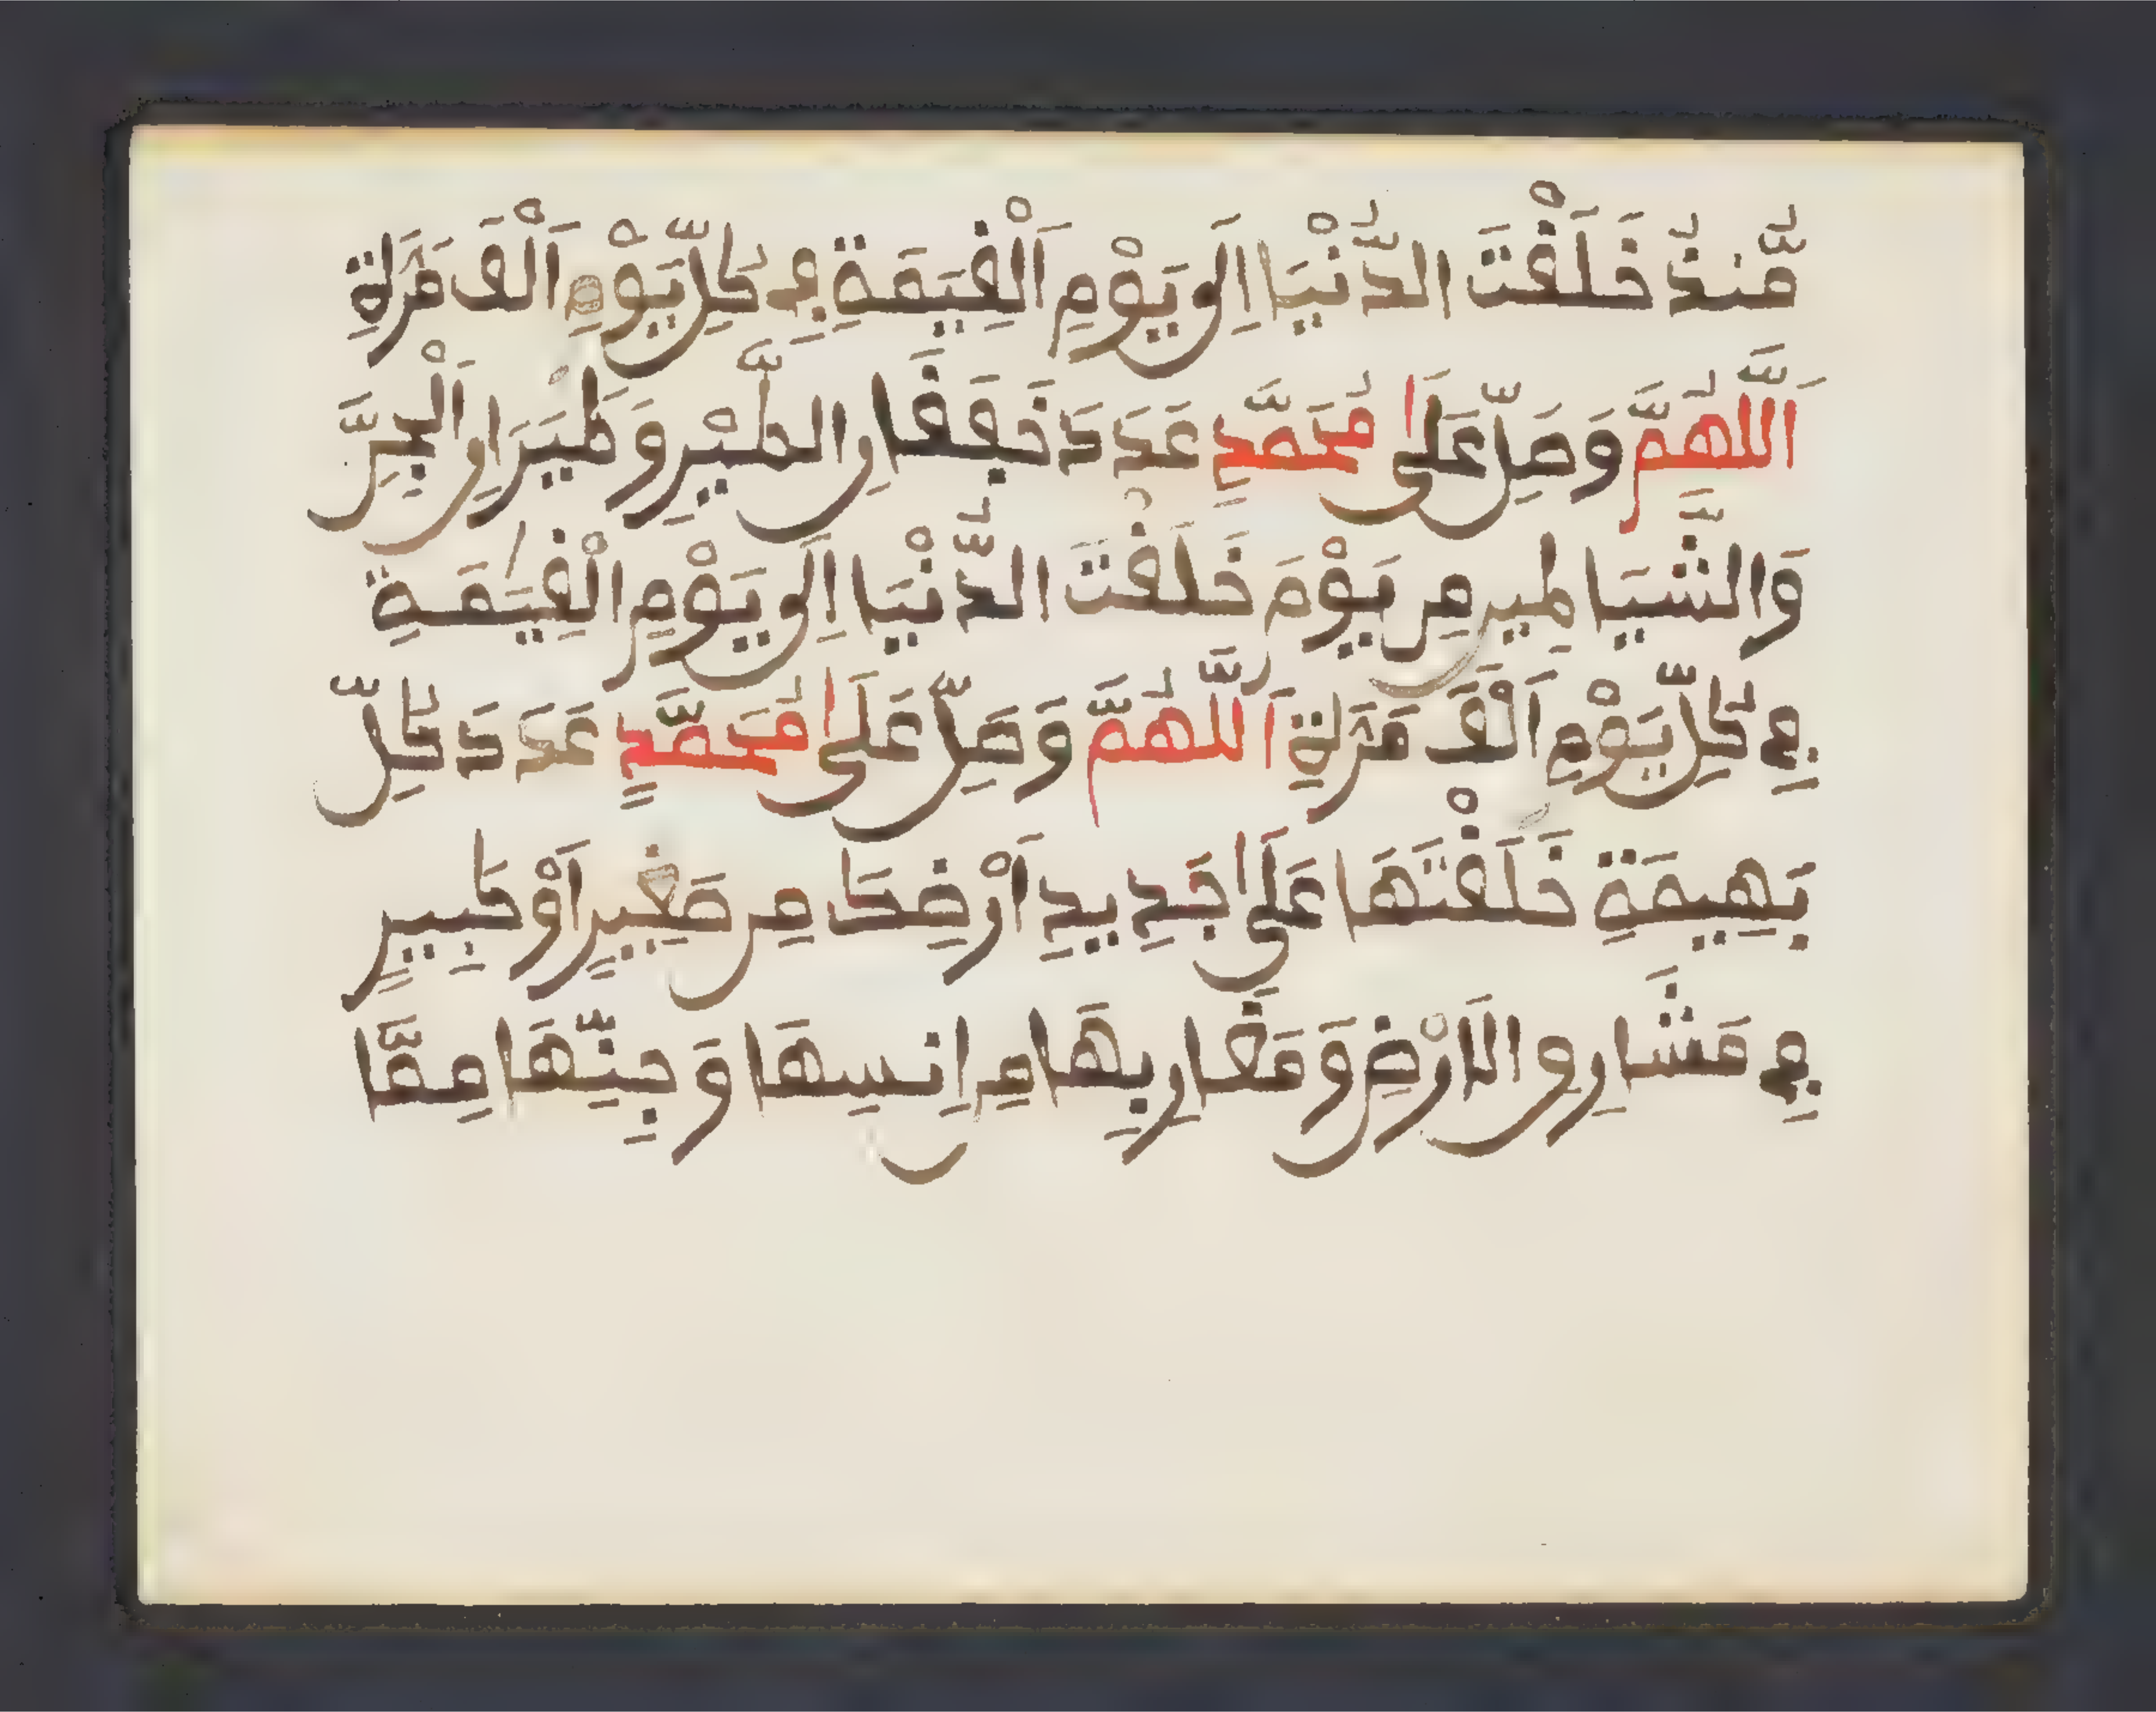 مُّنذُ خَلَقْتَ الدُّنْيَا اِلَى يَوْمِ اَلْقِيَمَةِ فِى كُلِّ يَوْمٍ اَلْفَ مَرَّةٍ
اَللَّهُمَّ وَصَلِّ عَلَى مُحَمَّدٍ عَدَدَ خَفَقَانِ الطَّيْرِ وَطَيَرَانِ اَلْجِنِّ
وَالشَّيَاطِينِ مِن يَوْمَ خَلَقْتَ الدُّنْيَا اِلَى يَوْمِ الْقِيَمَةِ
فِى كُلِّ يَوْمٍ اَلْفَ مَرَّةٍ اَللَّهُمَّ وَصَلِّ عَلَى مُحَمَّدٍ عَدَدَ كُلِّ
بَهِيمَةٍ خَلَقْتَهَا عَلَى جَدِيدِ اَرْضِكَ مِن صَغِيرٍ اَوْ كَبِيرٍ
فِى مَشَارِقِ الَارْضِ وَمَغَارِبِهَا مِن اِنسِهَا وَجِنِّهَا مِمَّا